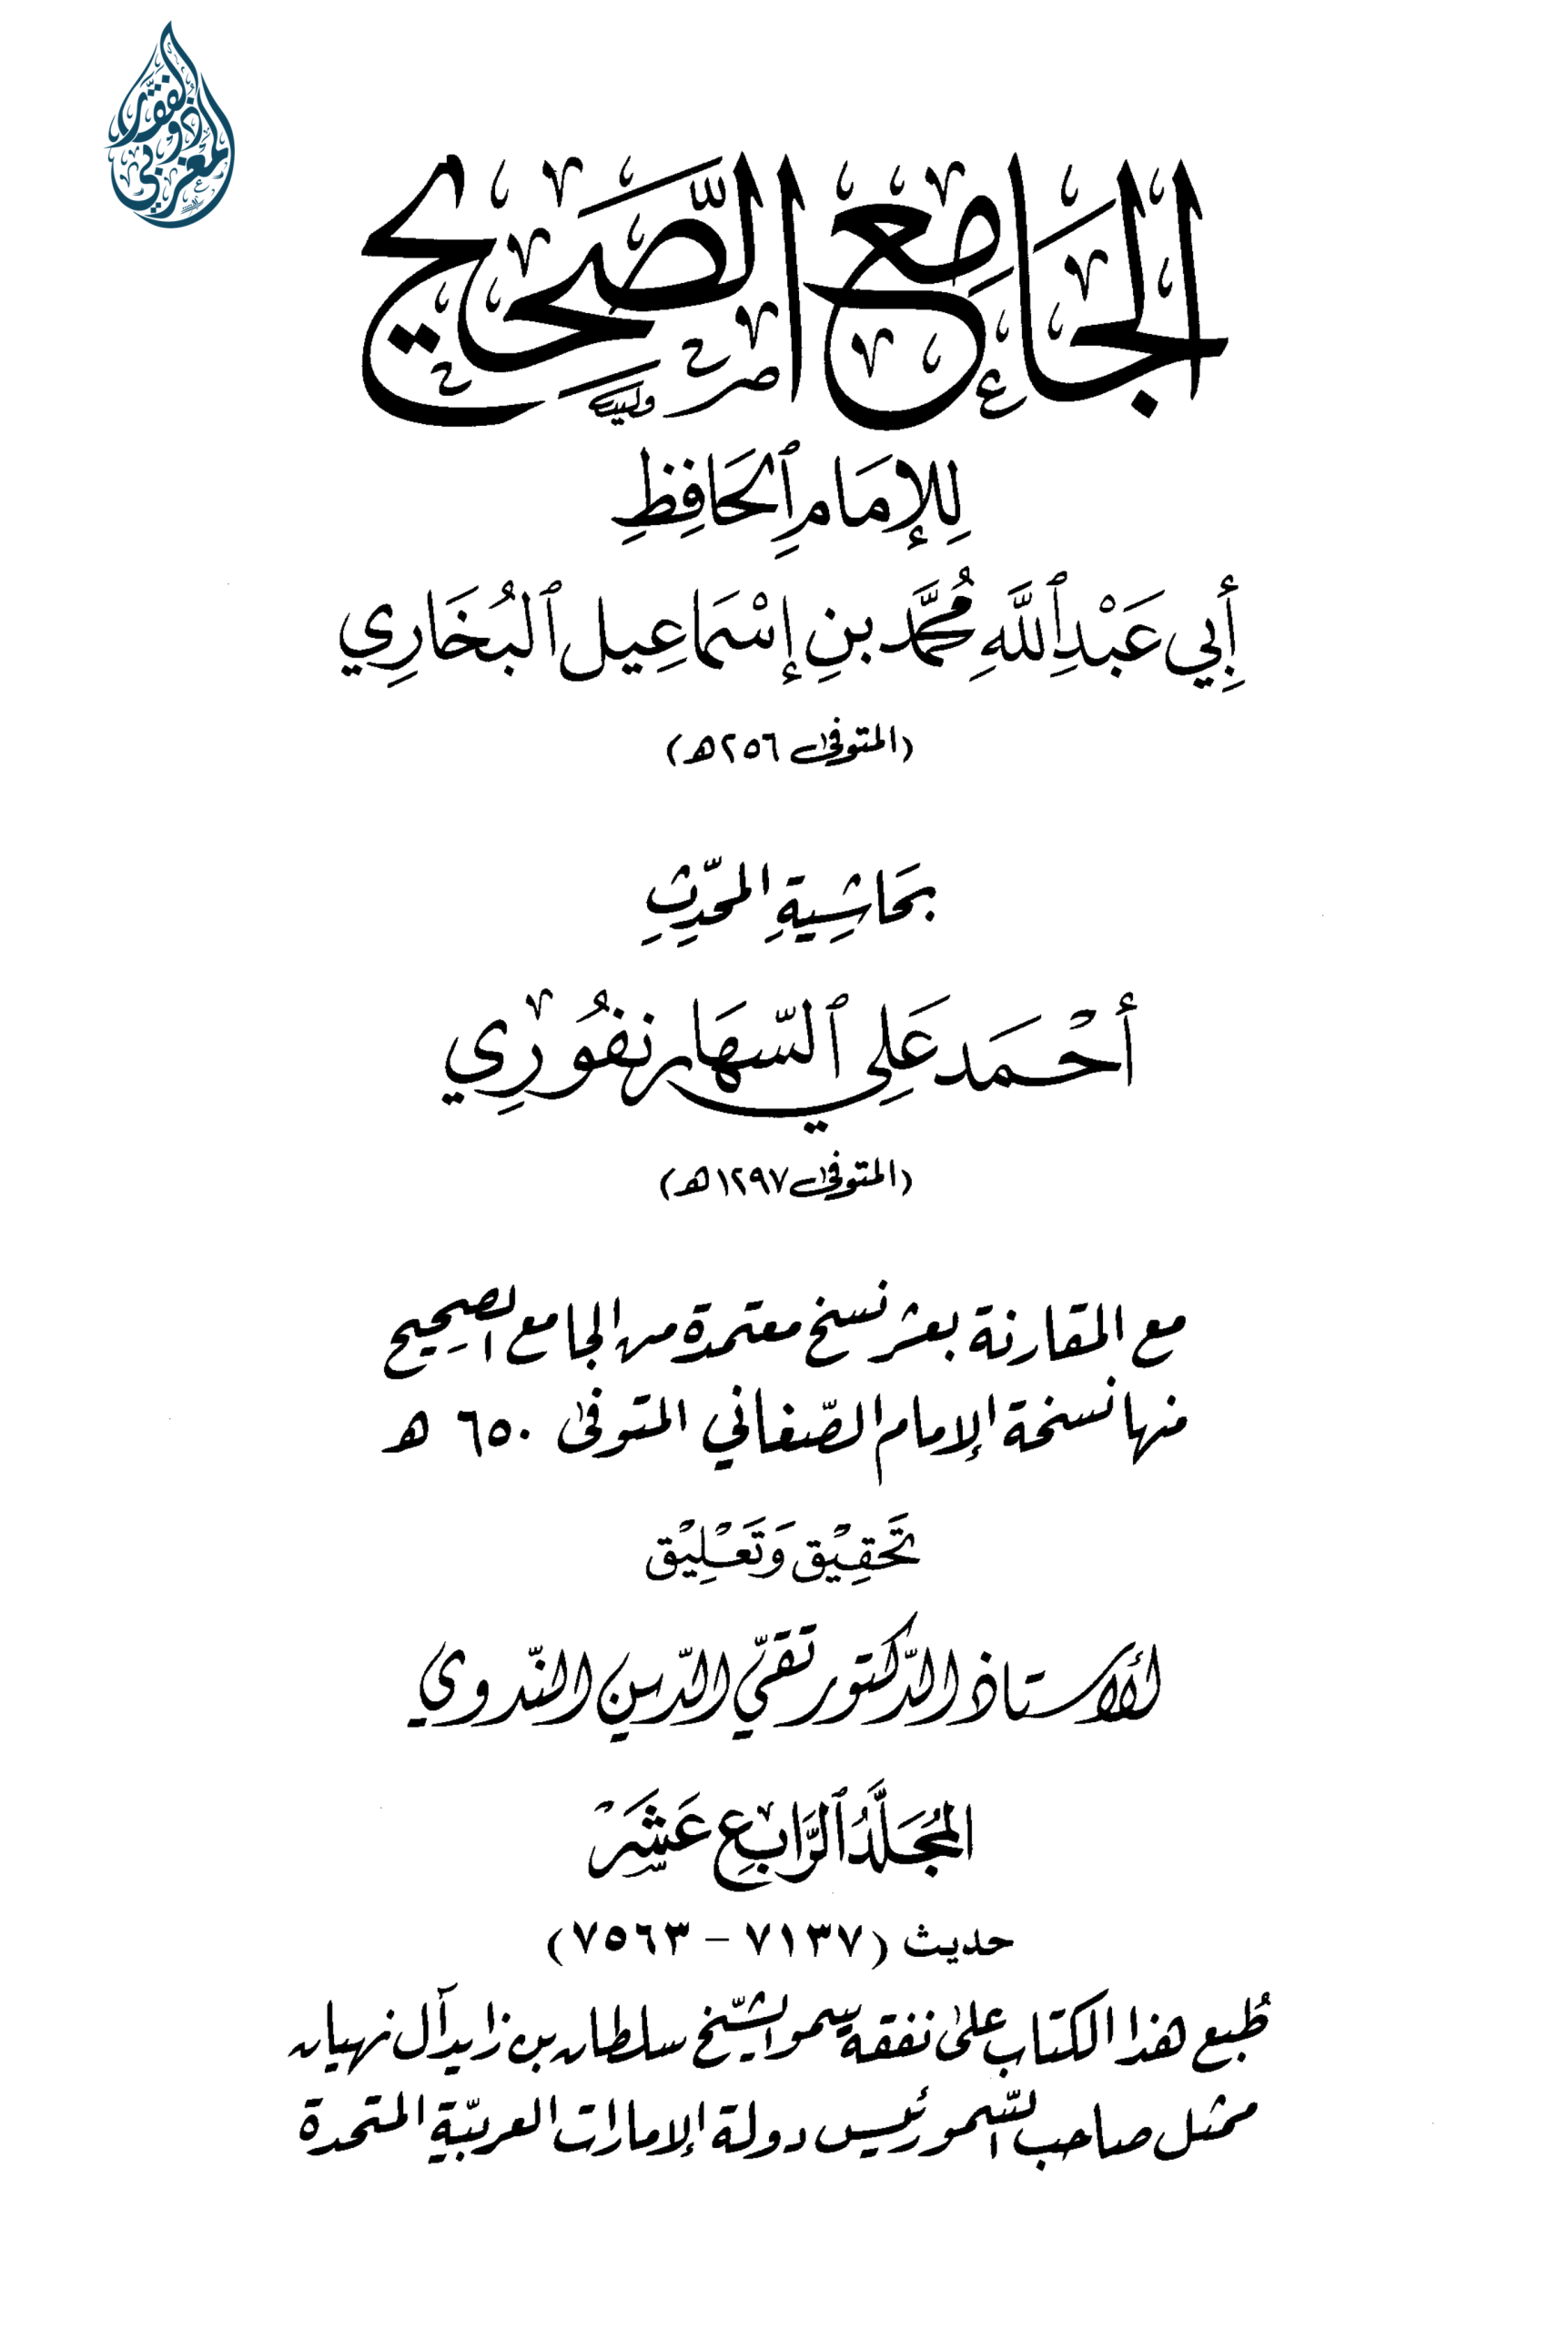 الجَامِع الصَّحِيح
لِلإمَامِ ٱلحَافِظِ
أَبِي عَبْدِ ٱللَّهِ مُحَمَّد بنِ إِسْمَاعِيل ٱلبُخَارِي
(المتوفى ٢٥٦ هـ)
بحَاشِيَةِ المحَدِّثِ
أَحْمَد عَلِي ٱلسَّهَارنفُوري
(المتوفى ١٢٩٧ هـ)
مع المقارنة بعشر نسخ معتمدة من الجامع الصحِيح
منها نسخة الإمام الصّغاني المتوفى ٦٥٠ هـ
تَحقِيْق وَتَعْلِيْق
الأستاذ الدّكتور تقيّ الدّين النّدوي
المُجَلَّدُ ٱلرَّابِع عَشَر
حديث (٧١٣٧ – ٧٥٦٣)
طُبع هذا الكتاب على نفقة سمو الشّيخ سلطان بن زايد آل نهيان
ممثل صاحب السّمو رئيس دولة الإمارات العربيّة المتحدة